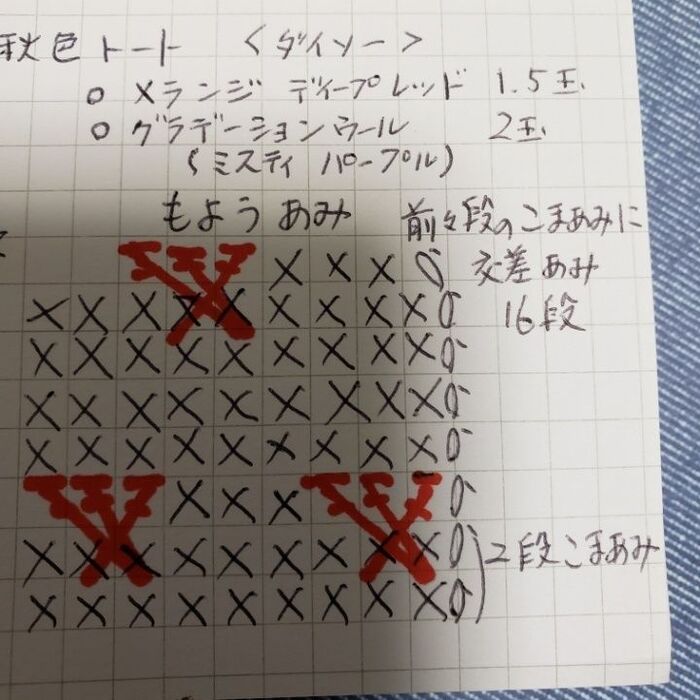 秋色トート 〈ダイソー〉
○ メランジ ディープレッド 1.5玉
○ グラデーションウール 2玉
(ミスティ パープル)
もようあみ 前々段のこまあみに
交差あみ
16段
2段こまあみ